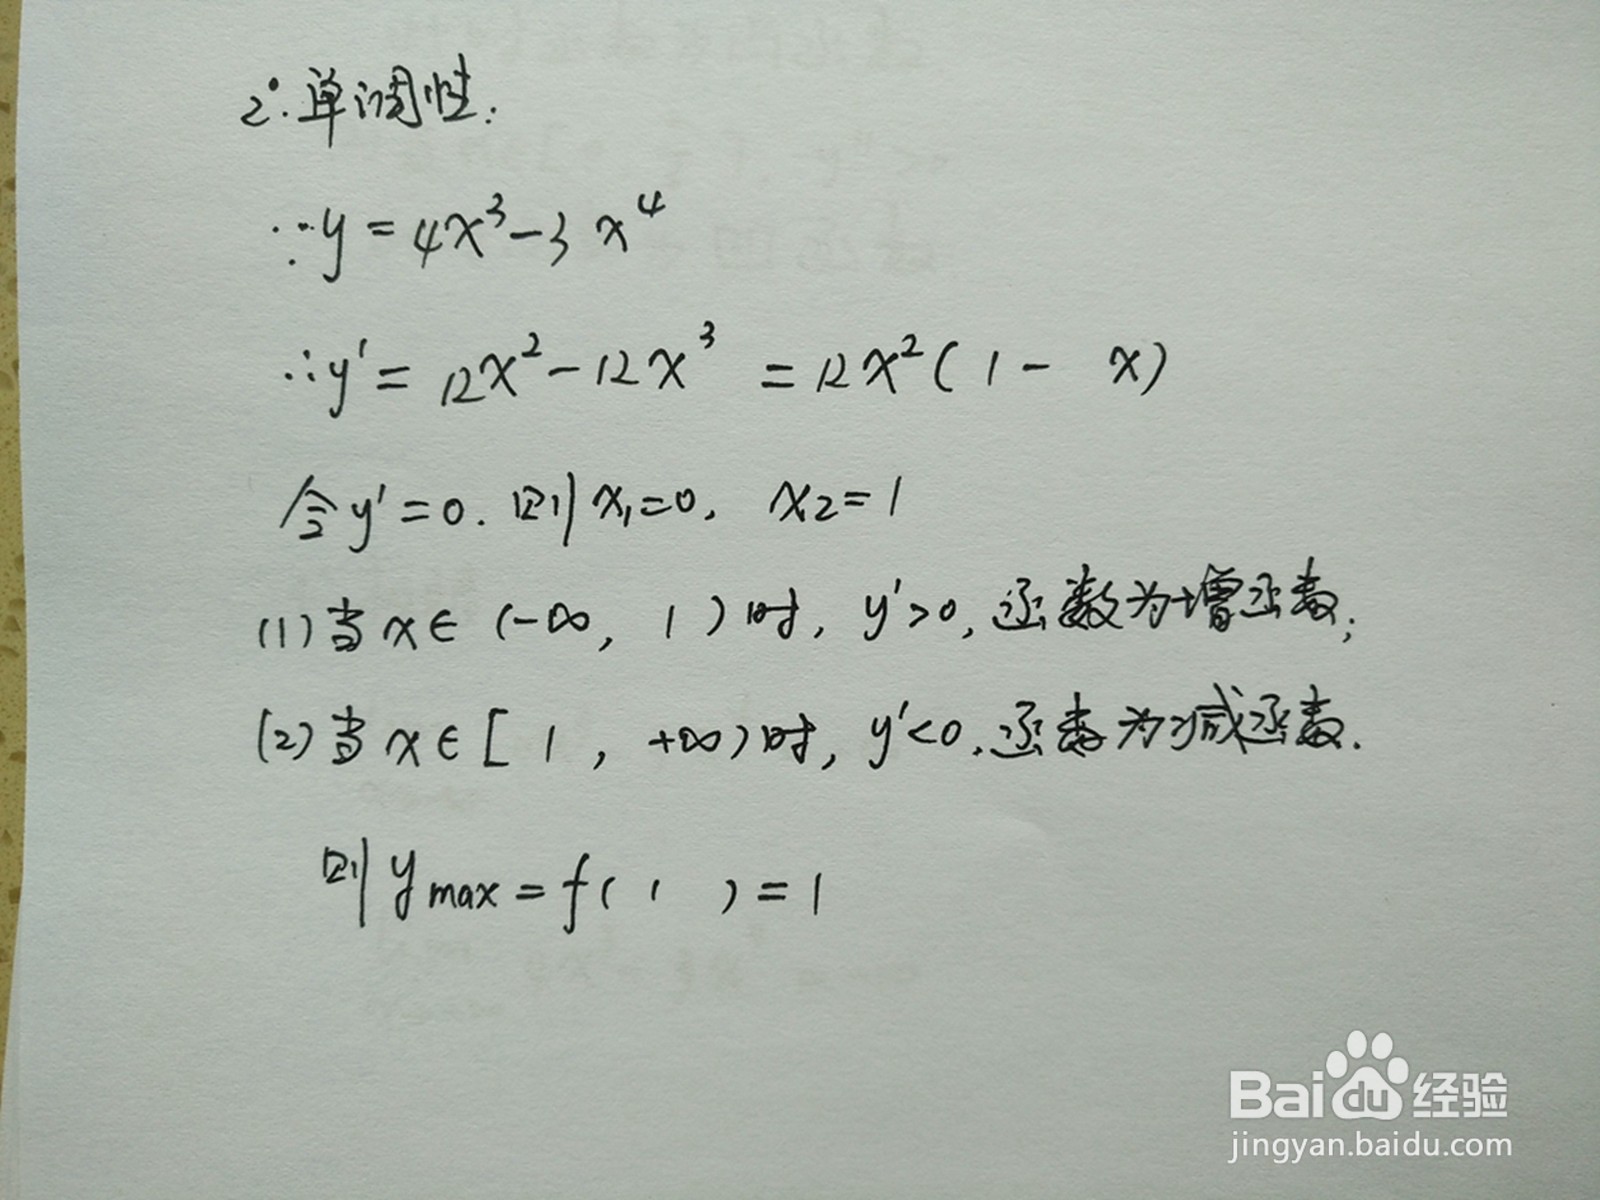 2°.单调性.
∵y=4x³-3x⁴
∴y'=12x²-12x³=12x²(1-x)
令y'=0.则x₁=0,x₂=1
(1)当x∈(-∞,1)时,y'>0,函数为增函数;
(2)当x∈[1,+∞)时,y'<0.函数为减函数.
则ymax=f(1)=1
Baidu经验
jingyan.baidu.com